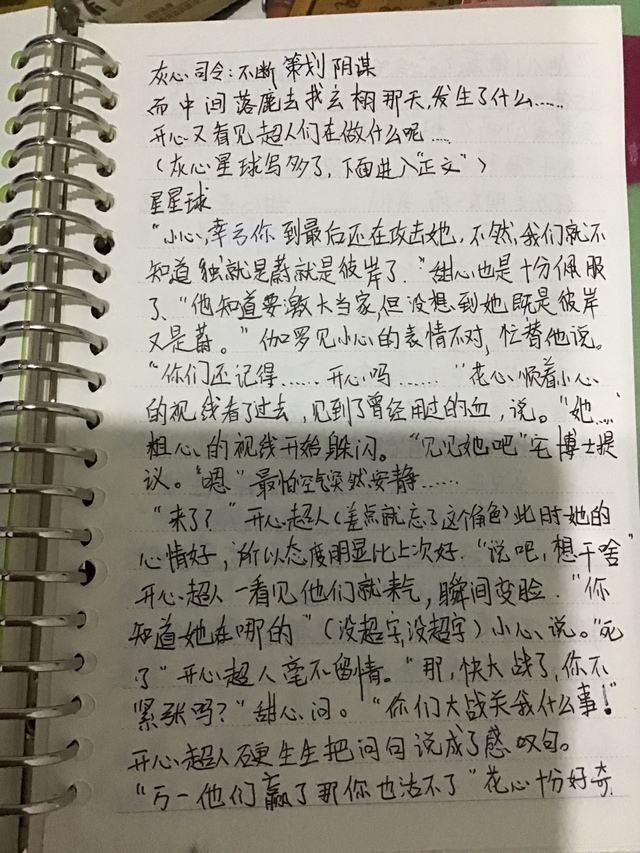 灰心司令:不断策划阴谋
而中间落鹿去找玄栩那天,发生了什么……
开心又看见超人们在做什么呢……
(灰心星球写多了,下面进入“正文”)
星星球
“小心,幸亏你到最后还在攻击她,不然,我们就不
知道独就是蔚就是彼岸了.”甜心也是十分佩服
了、“他知道要激大当家,但没想到她既是彼岸
又是蔚。”伽罗见小心的表情不对,忙替他说。
“你们还记得……开心吗……”花心顺着小心
的视线看了过去,见到了曾经用过的血,说。“她……”
粗心的视线开始躲闪。“见见她吧”宅博士提
议。“嗯”最怕空气突然安静……
“来了?”开心超人(差点就忘了这个角色)此时她的
心情好,所以态度明显比上次好.“说吧,想干啥”
开心超人一看见他们就来气,瞬间变脸.“你
知道她在哪的”(没超字,没超字)小心说。“死
了”开心超人毫不留情。“那,快大战了,你不
紧张吗?”甜心问。“你们大战关我什么事!”
开心超人硬生生把问句说成了感叹句。
“万一他们赢了那你也活不了”花心十分好奇